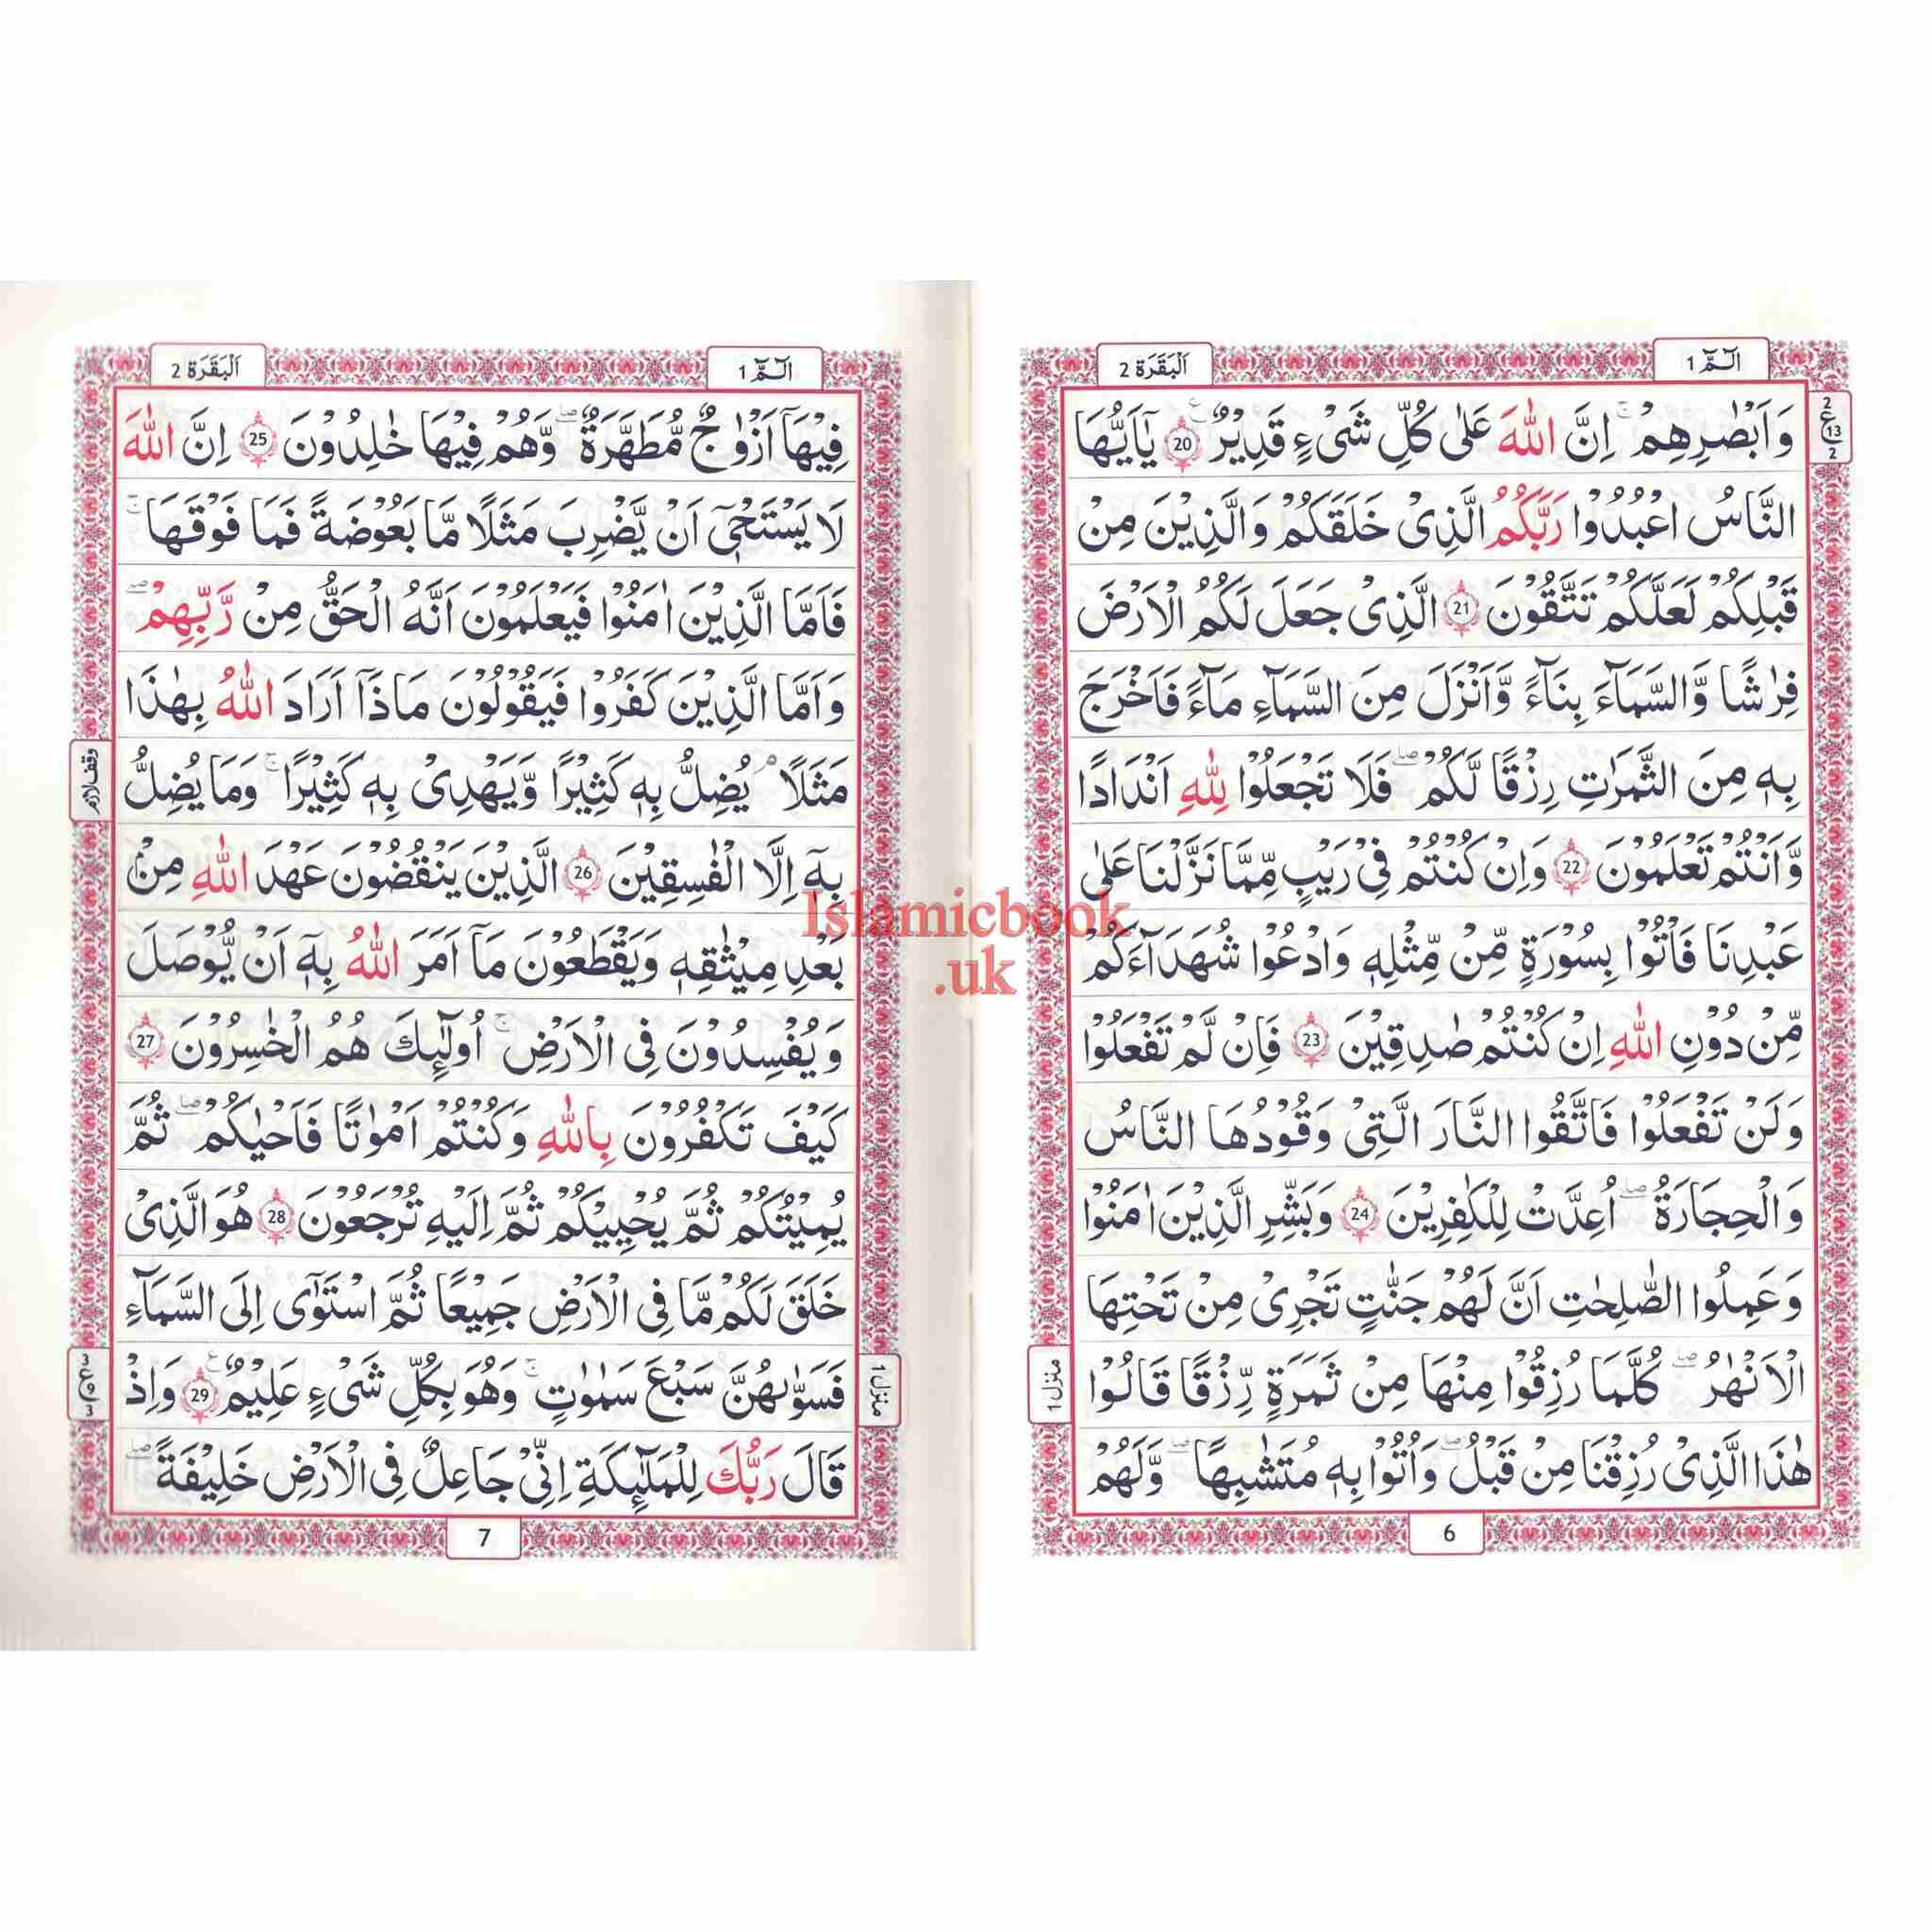 الٓمّٓ 1
اَلْبَقَرَة 2
وَاَبْصٰرِهِمْ ؕ اِنَّ اللّٰهَ عَلٰى كُلِّ شَىْءٍ قَدِيْرٌ 20 يٰٓاَيُّهَا
النَّاسُ اعْبُدُوْا رَبَّكُمُ الَّذِىْ خَلَقَكُمْ وَالَّذِيْنَ مِنْ
قَبْلِكُمْ لَعَلَّكُمْ تَتَّقُوْنَ 21 الَّذِىْ جَعَلَ لَكُمُ الْاَرْضَ
فِرٰشًا وَّالسَّمَآءَ بِنَآءً وَّاَنْزَلَ مِنَ السَّمَآءِ مَآءً فَاَخْرَجَ
بِهٖ مِنَ الثَّمَرٰتِ رِزْقًا لَّكُمْ ۖ فَلَا تَجْعَلُوْا لِلّٰهِ اَنْدَادًا
وَّاَنْتُمْ تَعْلَمُوْنَ 22 وَاِنْ كُنْتُمْ فِىْ رَيْبٍ مِّمَّا نَزَّلْنَا عَلٰى
عَبْدِنَا فَاْتُوْا بِسُوْرَةٍ مِّنْ مِّثْلِهٖ وَادْعُوْا شُهَدَآءَكُمْ
مِّنْ دُوْنِ اللّٰهِ اِنْ كُنْتُمْ صٰدِقِيْنَ 23 فَاِنْ لَّمْ تَفْعَلُوْا
وَلَنْ تَفْعَلُوْا فَاتَّقُوا النَّارَ الَّتِىْ وَقُوْدُهَا النَّاسُ
وَالْحِجَارَةُ ۖ اُعِدَّتْ لِلْكٰفِرِيْنَ 24 وَبَشِّرِ الَّذِيْنَ اٰمَنُوْا
وَعَمِلُوا الصّٰلِحٰتِ اَنَّ لَهُمْ جَنّٰتٍ تَجْرِىْ مِنْ تَحْتِهَا
الْاَنْهٰرُ ۖ كُلَّمَا رُزِقُوْا مِنْهَا مِنْ ثَمَرَةٍ رِّزْقًا قَالُوْا
هٰذَا الَّذِىْ رُزِقْنَا مِنْ قَبْلُ ۖ وَاُتُوْا بِهٖ مُتَشٰبِهًا ۖ وَلَهُمْ
منزل 1
6
الٓمّٓ 1
اَلْبَقَرَة 2
فِيْهَآ اَزْوٰجٌ مُّطَهَّرَةٌ ۖ وَّهُمْ فِيْهَا خٰلِدُوْنَ 25 اِنَّ اللّٰهَ
لَا يَسْتَحْىٖٓ اَنْ يَّضْرِبَ مَثَلًا مَّا بَعُوْضَةً فَمَا فَوْقَهَا ۚ
فَاَمَّا الَّذِيْنَ اٰمَنُوْا فَيَعْلَمُوْنَ اَنَّهُ الْحَقُّ مِنْ رَّبِّهِمْ ۖ
وَاَمَّا الَّذِيْنَ كَفَرُوْا فَيَقُوْلُوْنَ مَاذَآ اَرَادَ اللّٰهُ بِهٰذَا
مَثَلًا ۘ يُضِلُّ بِهٖ كَثِيْرًا وَّيَهْدِىْ بِهٖ كَثِيْرًا ۚ وَمَا يُضِلُّ
بِهٖٓ اِلَّا الْفٰسِقِيْنَ 26 الَّذِيْنَ يَنْقُضُوْنَ عَهْدَ اللّٰهِ مِنْۢ
بَعْدِ مِيْثٰقِهٖ وَيَقْطَعُوْنَ مَآ اَمَرَ اللّٰهُ بِهٖٓ اَنْ يُّوْصَلَ
وَيُفْسِدُوْنَ فِى الْاَرْضِ ۚ اُولٰٓئِكَ هُمُ الْخٰسِرُوْنَ 27
كَيْفَ تَكْفُرُوْنَ بِاللّٰهِ وَكُنْتُمْ اَمْوٰتًا فَاَحْيٰكُمْ ۖ ثُمَّ
يُمِيْتُكُمْ ثُمَّ يُحْيِيْكُمْ ثُمَّ اِلَيْهِ تُرْجَعُوْنَ 28 هُوَ الَّذِىْ
خَلَقَ لَكُمْ مَّا فِى الْاَرْضِ جَمِيْعًا ثُمَّ اسْتَوٰٓى اِلَى السَّمَآءِ
فَسَوّٰىهُنَّ سَبْعَ سَمٰوٰتٍ ۚ وَهُوَ بِكُلِّ شَىْءٍ عَلِيْمٌ 29 وَاِذْ
قَالَ رَبُّكَ لِلْمَلٰٓئِكَةِ اِنِّىْ جَاعِلٌ فِى الْاَرْضِ خَلِيْفَةً ۖ
وقف لازم
منزل 1
7
Islamicbook
.uk